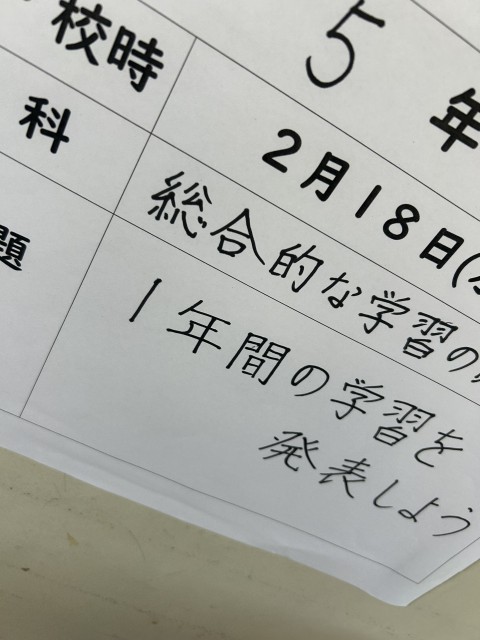 5 年
校時 2月18日(
科 総合的な学習の
題 1年間の学習を
発表しよう